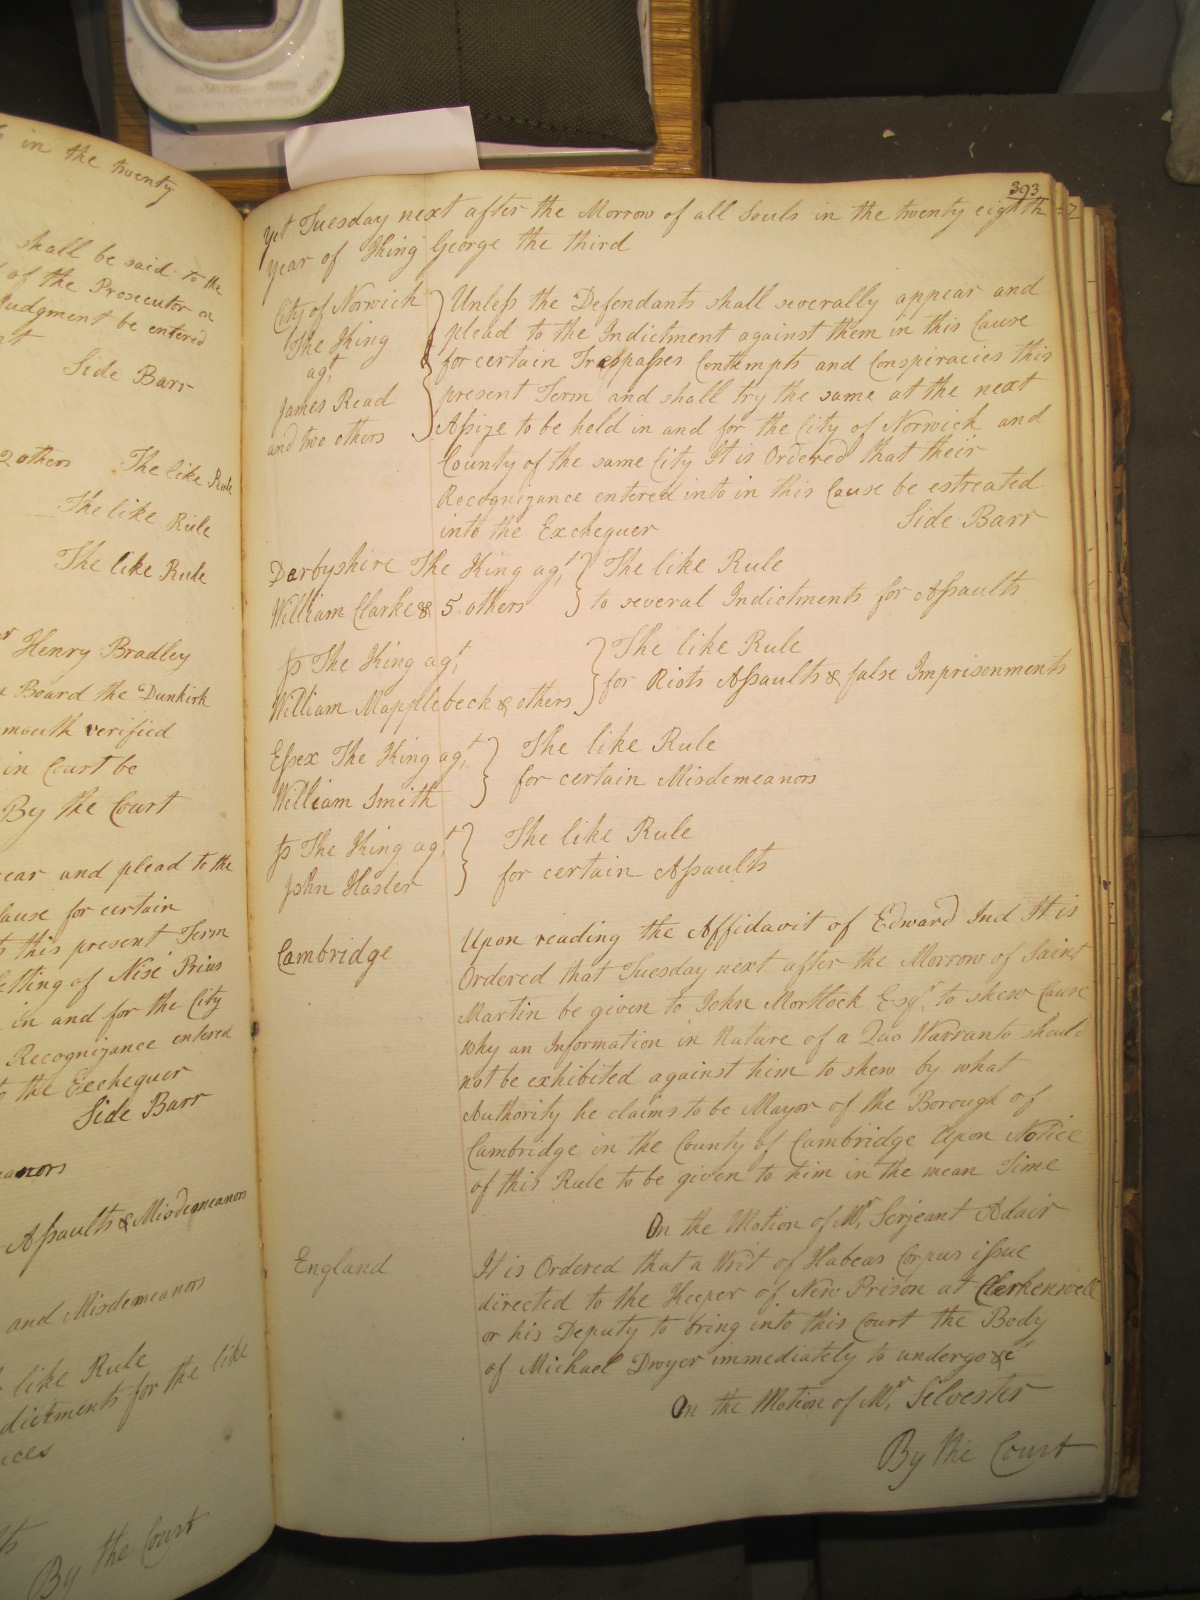 in the twenty
shall be said to the
of the Prosecutor on
Judgment be entered
Side Barr
2 others The like Rule
The like Rule
The like Rule
Henry Bradley
Board the Dunkirk
mouth verified
in Court be
By the Court
ear and plead to the
Cause for certain
this present Term
Sitting of Nisi Prius
in and for the City
Recognizance entered
to the Exchequer
Side Barr
eanors
Assaults & Misdemeanors
and Misdemeanors
like Rule
dictments for the like
nces
By the Court
393
Yet Tuesday next after the Morrow of all Souls in the twenty eighth
Year of King George the third
City of Norwich
The King
agt.
James Read
and two others
Unless the Defendants shall severally appear and
plead to the Indictment against them in this Cause
for certain Trespasses Contempts and Conspiracies this
present Term and shall try the same at the next
Assize to be held in and for the City of Norwich and
County of the same City It is Ordered that their
Recognizance entered into in this Cause be estreated
into the Exchequer Side Barr
Derbyshire The King agt. The like Rule
William Clarke & 5 others to several Indictments for Assaults
Ss The King agt. The like Rule
William Mapplebeck & others for Riots Assaults & false Imprisonments
Essex The King agt. The like Rule
William Smith for certain Misdemeanors
Ss The King agt. The like Rule
John Hasler for certain Assaults
Cambridge
Upon reading the Affidavit of Edward Ind It is
Ordered that Tuesday next after the Morrow of Saint
Martin be given to John Mortlock Esqr. to shew Cause
why an Information in Nature of a Quo Warranto should
not be exhibited against him to shew by what
Authority he claims to be Mayor of the Borough of
Cambridge in the County of Cambridge Upon Notice
of this Rule to be given to him in the mean Time
On the Motion of Mr. Serjeant Adair
England
It is Ordered that a Writ of Habeas Corpus issue
directed to the Keeper of New Prison at Clerkenwell
or his Deputy to bring into this Court the Body
of Michael Dwyer immediately to undergo &c
On the Motion of Mr. Silvester
By the Court